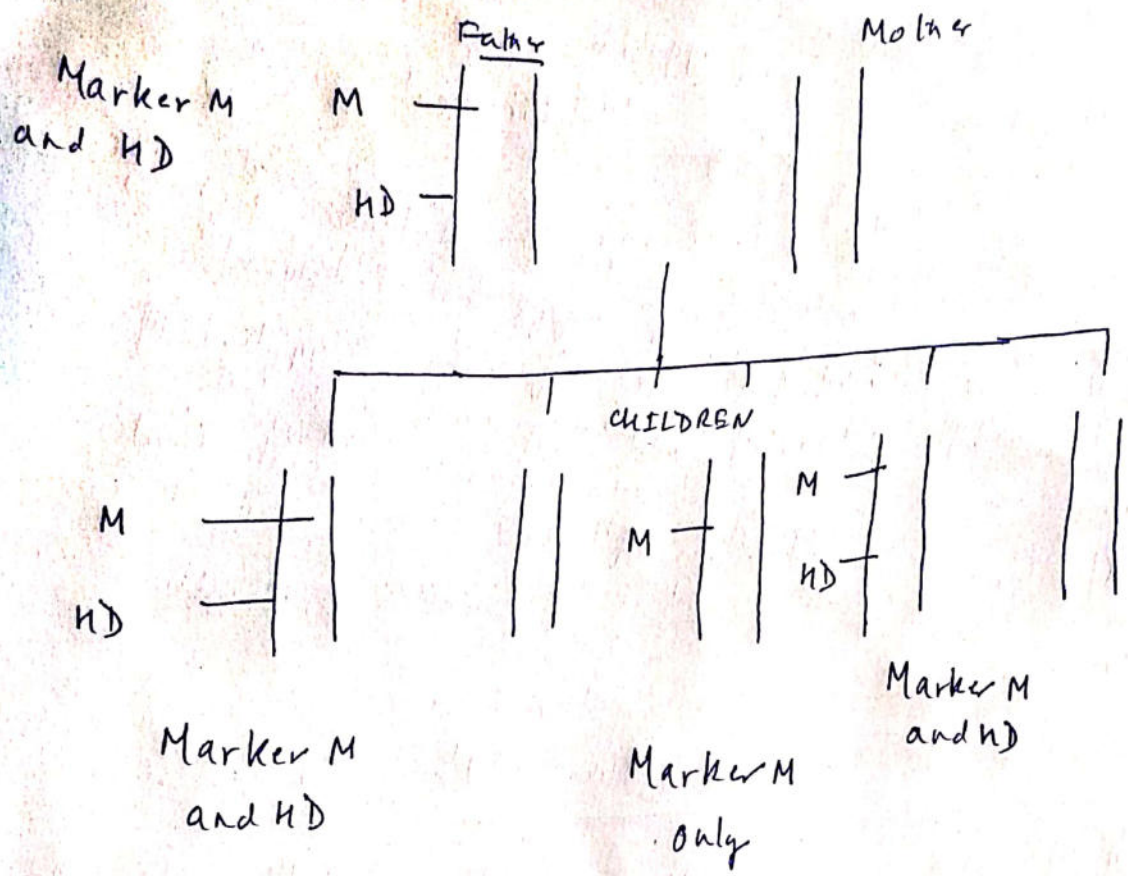 Father
Mother
Marker M
and HD
M
HD
CHILDREN
M
HD
M
M
HD
Marker M
and HD
Marker M
only
Marker M
and HD